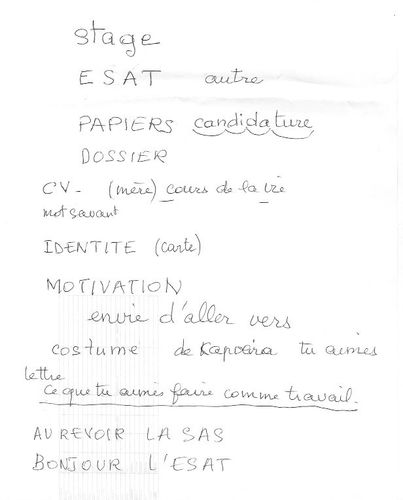 stage
ESAT autre
PAPIERS candidature
DOSSIER
CV - (mère) cours de la vie
mot savant
IDENTITE (carte)
MOTIVATION
envie d'aller vers
costume de Kapoéra tu aimes
lettre
ce que tu aimes faire comme travail.
AU REVOIR LA SAS
BONJOUR L'ESAT